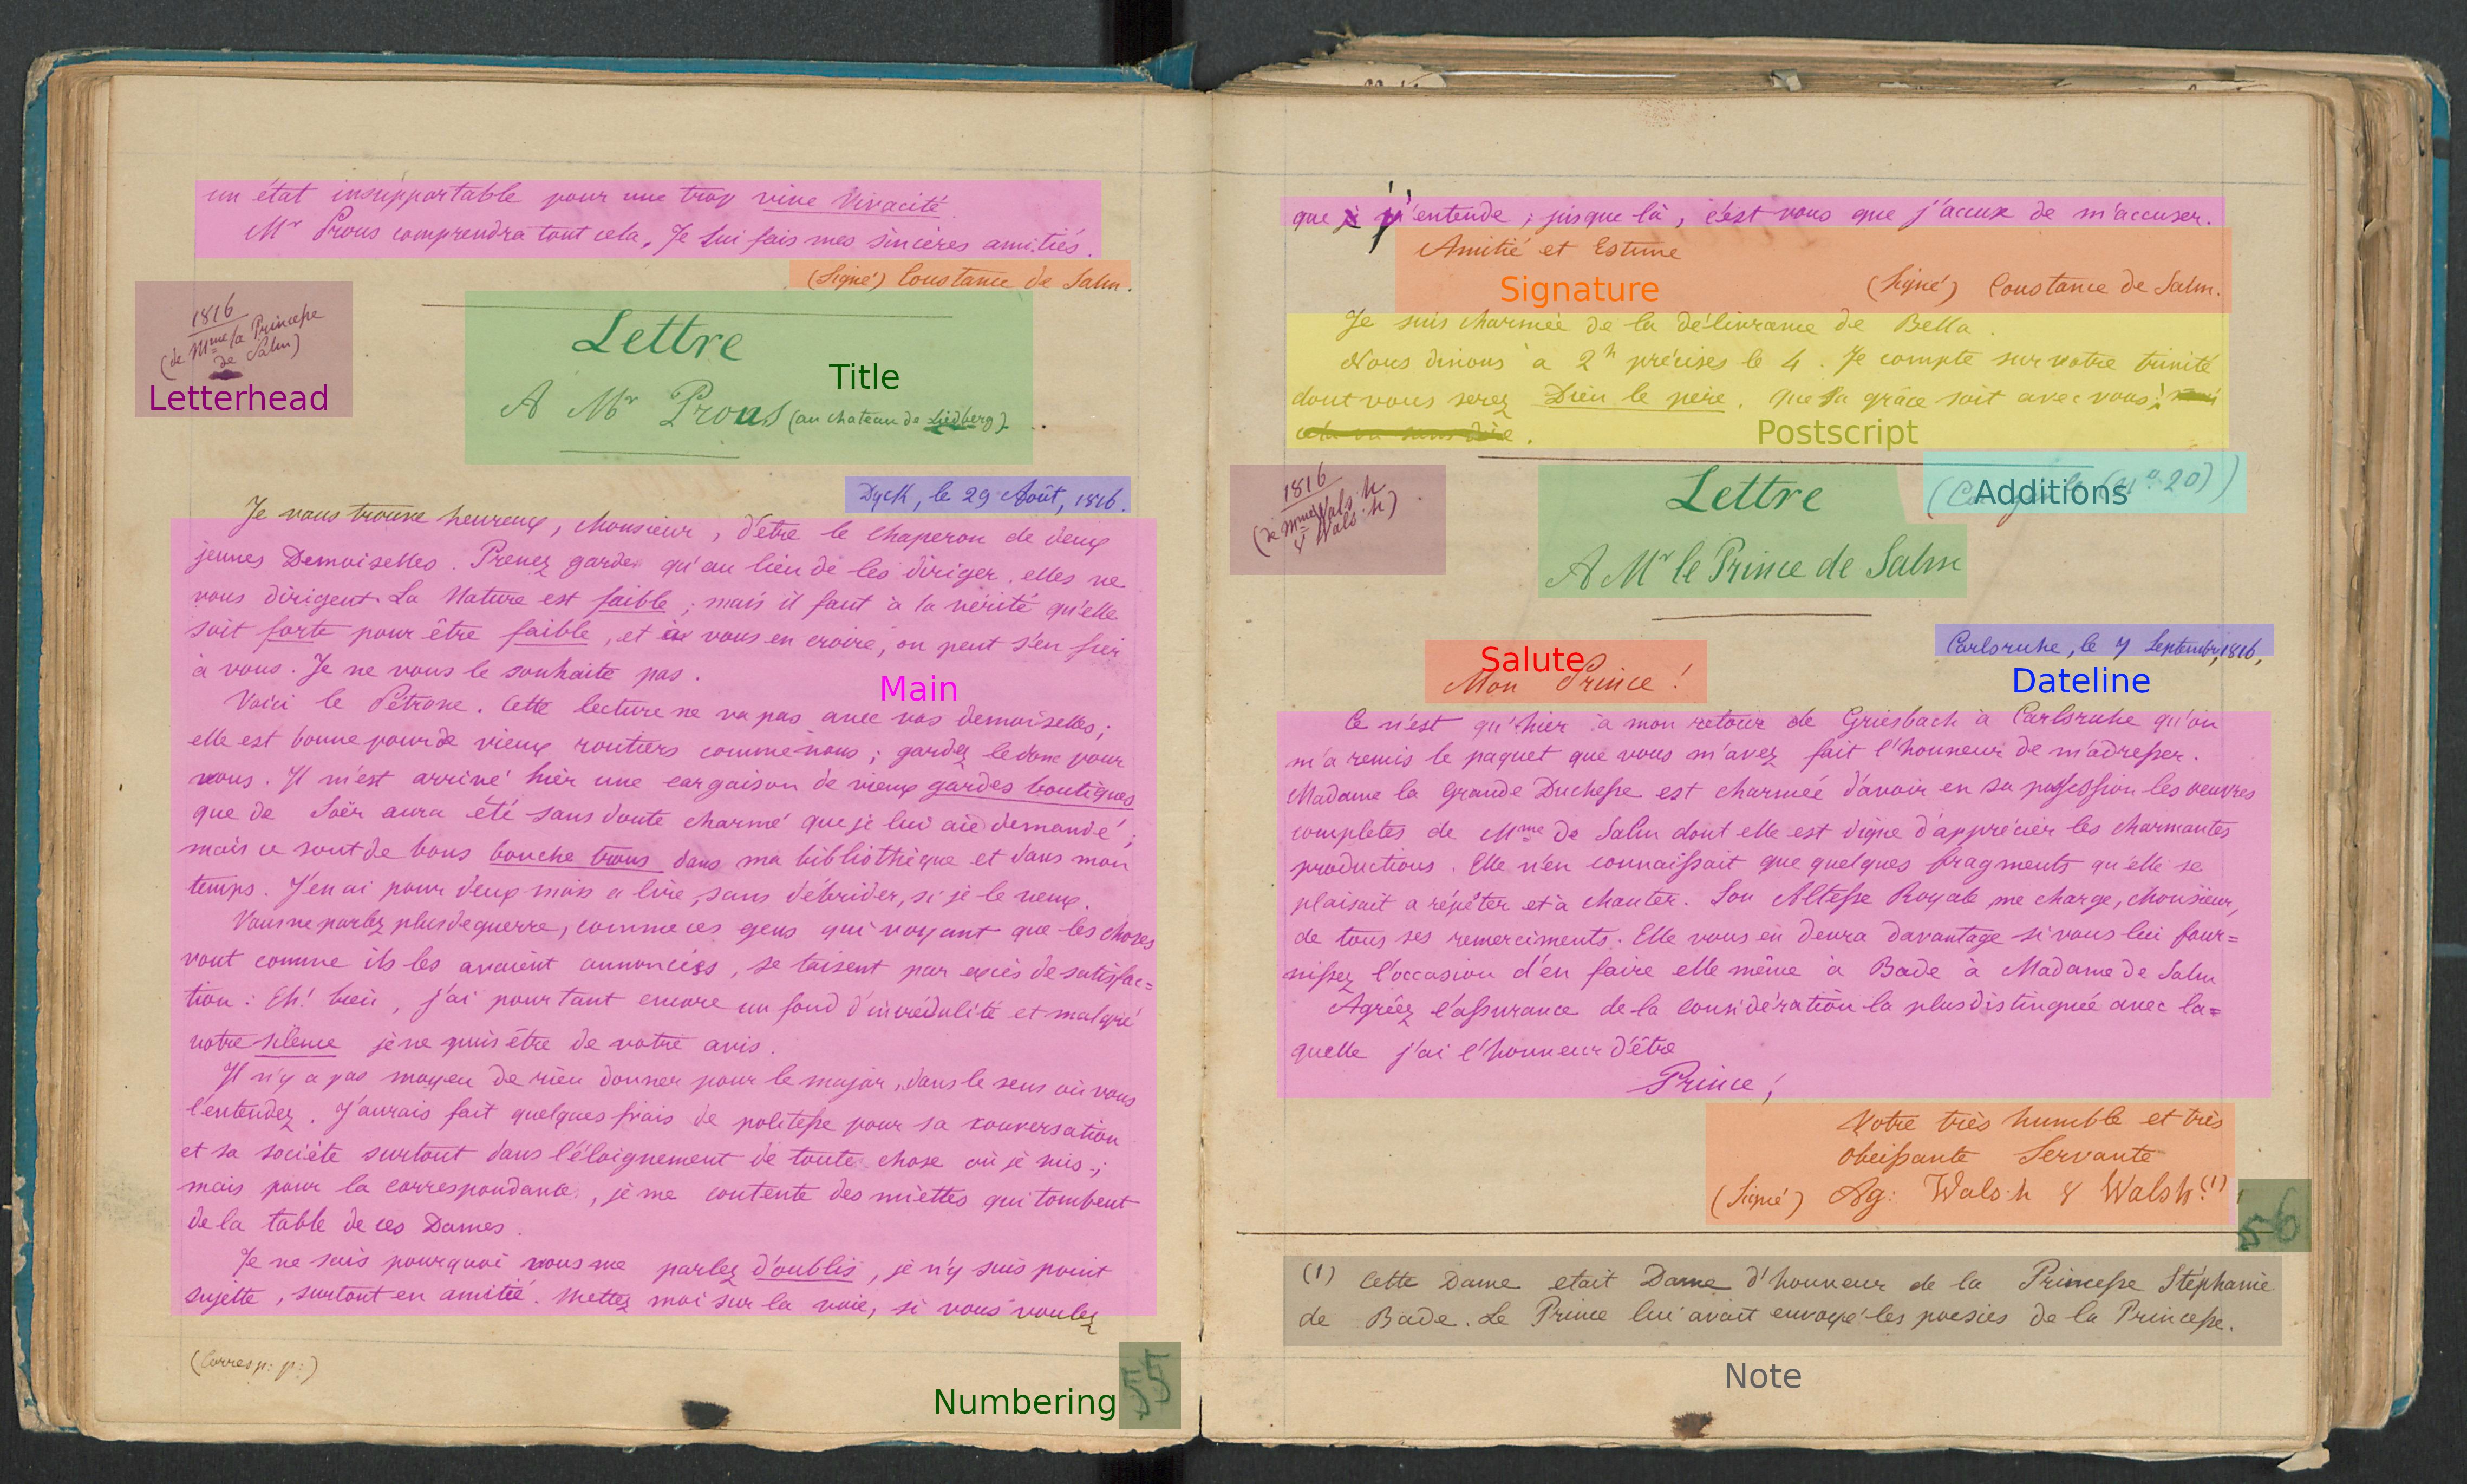 un état insupportable pour une trop vive vivacité.
Mr Prous comprendra tout cela, Je lui fais mes sincères amitiés.
(Signé) Constance de Salm.
1816
(de Mme la Princesse
de Salm)
Letterhead
Lettre
Title
A Mr Prous (au chateau de Liedberg)
Dyck, le 29 Août, 1816.
Je vous trouve heureux, Monsieur, d'être le chaperon de deux
jeunes Demoiselles. Prenez garde qu'au lieu de les diriger, elles ne
vous dirigent. La Nature est faible ; mais il faut à la vérité qu'elle
soit forte pour être faible, et à vous en croire, on peut s'en fier
à vous. Je ne vous le souhaite pas.
Main
Voici le Pétrone. Cette lecture ne va pas avec vos demoiselles ;
elle est bonne pour de vieux routiers comme nous ; gardez le donc pour
vous. Il m'est arrivé hier une cargaison de vieux gardes boutiques
que de Soër aura été sans doute charmé que je lui aie demandé ;
mais ce sont de bons bouche trous dans ma bibliothèque et dans mon
temps. J'en ai pour deux mois a lire, sans débrider, si je le veux.
Vous ne parlez plus de guerre, comme ces gens qui voyant que les choses
vont comme ils les avaient annoncées, se taisent par excès de satisfac=
tion : Eh! bien, j'ai pourtant encore un fond d'incrédulité et malgré
votre silence je ne puis être de votre avis.
Il n'y a pas moyen de rien donner pour le major, dans le sens où vous
l'entendez. J'aurais fait quelques frais de politesse pour sa conversation
et sa société surtout dans l'éloignement de toute chose où je suis ;
mais pour la correspondance, je me contente des miettes qui tombent
de la table de ces Dames.
Je ne sais pourquoi vous me parlez d'oublis, je n'y suis point
sujette, surtout en amitié. Mettez moi sur la voie, si vous voulez
(Corresp: p:)
Numbering
55
que j'entende ; jusque là, c'est vous que j'accuse de m'accuser.
Amitié et Estime
Signature
(Signé) Constance de Salm.
Je suis charmée de la délivrance de Bella.
Nous dinons à 2h précises le 4. Je compte sur votre trinité
dont vous serez Dieu le père. Que sa grâce soit avec vous!
cela va sans dire.
Postscript
1816
(de Mme Walsh
& Walsh)
Lettre
(No 20))
Additions
A Mr le Prince de Salm
Carlsruhe, le 7 Septembre, 1816,
Dateline
Salute
Mon Prince !
Ce n'est qu'hier à mon retour de Griesbach à Carlsruhe qu'on
m'a remis le paquet que vous m'avez fait l'honneur de m'adresser.
Madame la Grande Duchesse est charmée d'avoir en sa possession les oeuvres
completes de Mme de Salm dont elle est digne d'apprécier les charmantes
productions. Elle n'en connaissait que quelques fragments qu'elle se
plaisait a répéter et à chanter. Son Altesse Royale me charge, Monsieur,
de tous ses remerciments. Elle vous en devra davantage si vous lui four=
nissez l'occasion d'en faire elle même à Bade à Madame de Salm
Agréez l'assurance de la considération la plus distinguée avec la=
quelle j'ai l'honneur d'être
Prince,
Votre très humble et très
obeissante Servante
(Signé) Ag: Walsh & Walsh (1)
56
(1) Cette Dame etait Dame d'honneur de la Princesse Stéphanie
de Bade. Le Prince lui avait envoyé les poesies de la Princesse.
Note